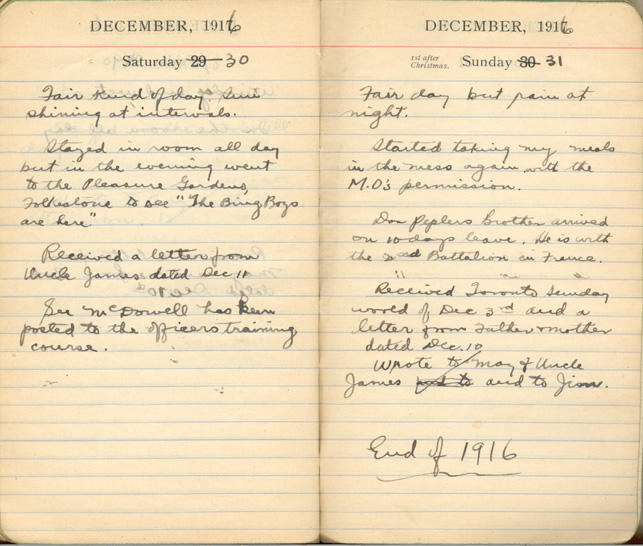 DECEMBER, 1916
Saturday 29 30
Fair kind of day. Sun
shining at intervals.
Stayed in room all day
but in the evening went
to the Pleasure Gardens,
Folkestone to see "The Bing Boys
are here"
Received a letter from
Uncle James dated Dec 11
See McDowell has been
posted to the officers training
course.
DECEMBER, 1916
1st after
Christmas. Sunday 30 31
Fair day but rain at
night.
Started taking my meals
in the mess again with the
M.O's permission.
Don Peplers brother arrived
on 10 days leave. He is with
the 2nd Battalion in France.
Received Toronto Sunday
world of Dec 3rd and a
letter from Father & mother
dated Dec. 10
Wrote to May & Uncle
James and to and to Jim.
End of 1916